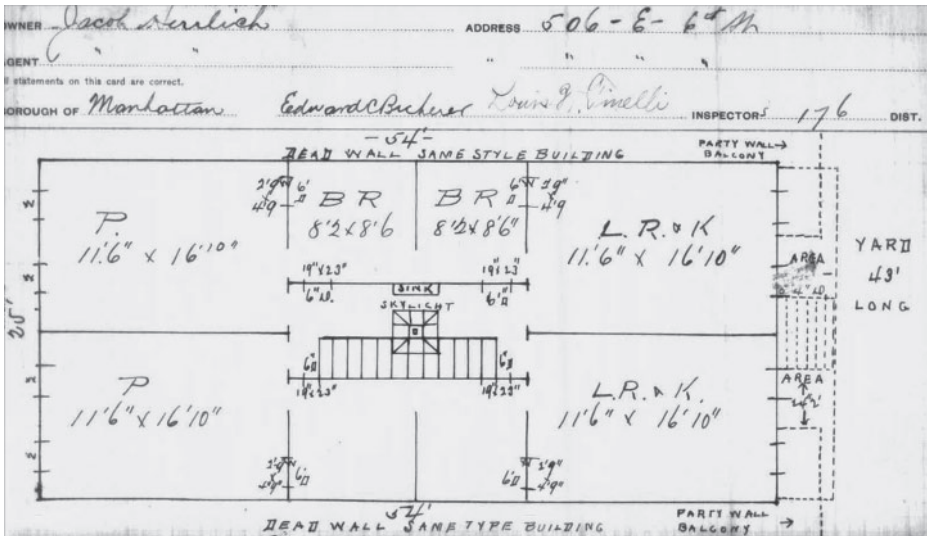 OWNER Jacob Herrlich ADDRESS 506 - E - 6th St
AGENT " " " " " "
statements on this card are correct.
BOROUGH OF Manhattan Edward C Bicherer Louis J. Cinelli INSPECTORS 176 DIST.
- 54' -
DEAD WALL SAME STYLE BUILDING
PARTY WALL
BALCONY
2'9" 6' BR BR 6' 2'9"
4'9 8'2 x 8'6 8'2 x 8'6" 4'9
P. L.R. & K
11'6" x 16'10" 11'6" x 16'10"
YARD
43'
LONG
AREA
19" x 23" 19" x 23"
6" D. SINK 6' D
SKYLIGHT
25'
6 D 6 D
19" x 23" 19" x 23"
P L.R. & K.
11'6" x 16'10" 11'6" x 16'10"
AREA
2'9" 6' D 6 D 2'9"
4'9" 4'9"
54'
DEAD WALL SAME TYPE BUILDING
PARTY WALL
BALCONY